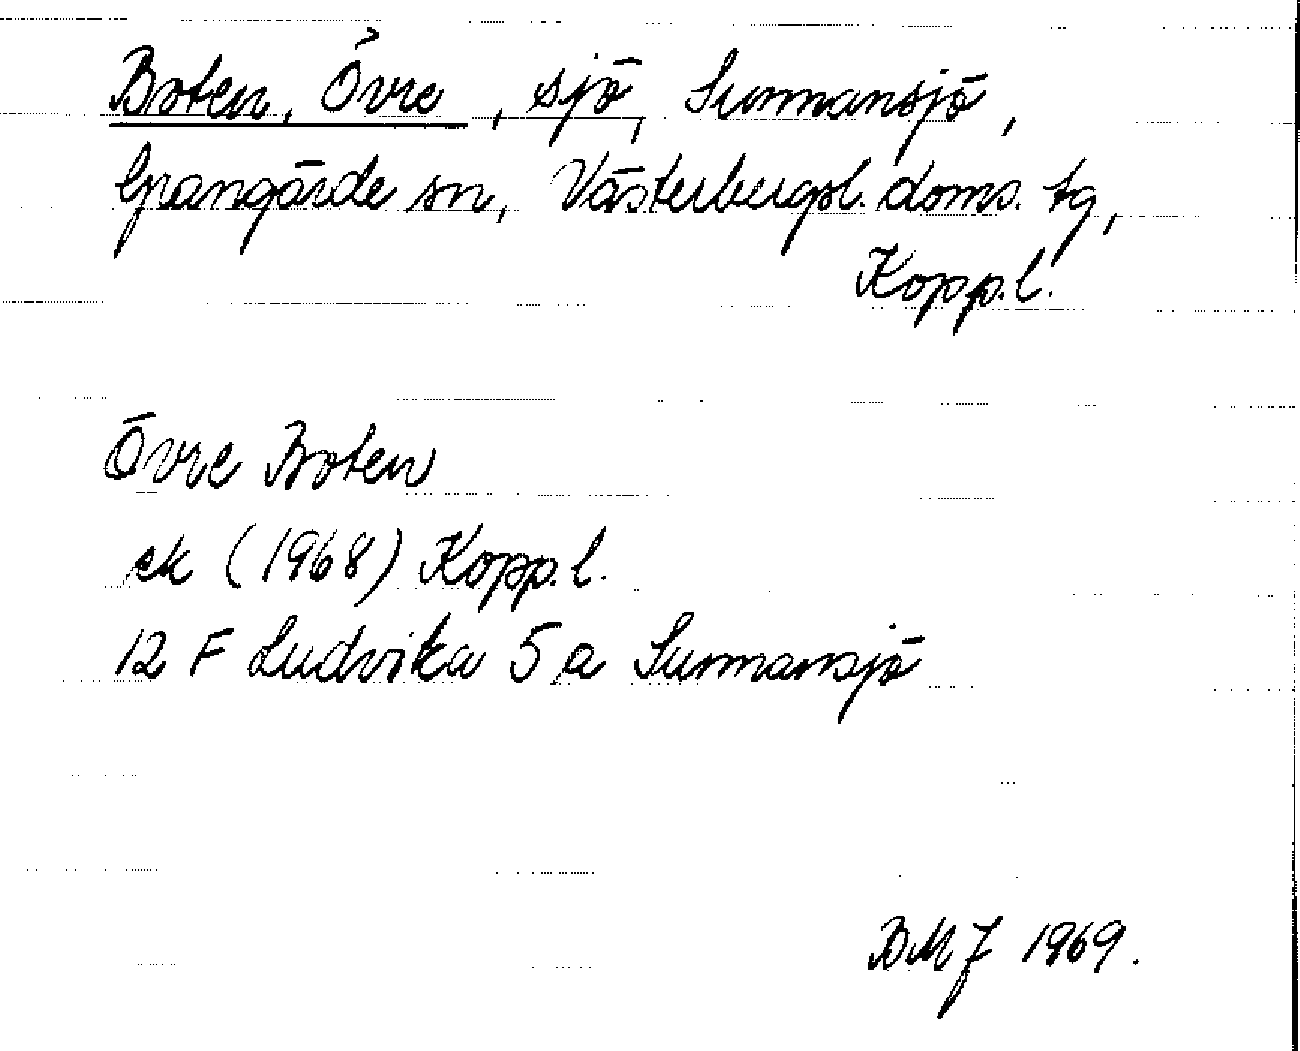 Boten, Övre, sjö, Sunnansjö,
Grangärde sn, Västerbergsl. doms. tg,
Kopp.l.
Övre Boten
ek (1968) Kopp.l.
12 F Ludvika 5 a Sunnansjö
BMJ 1969.